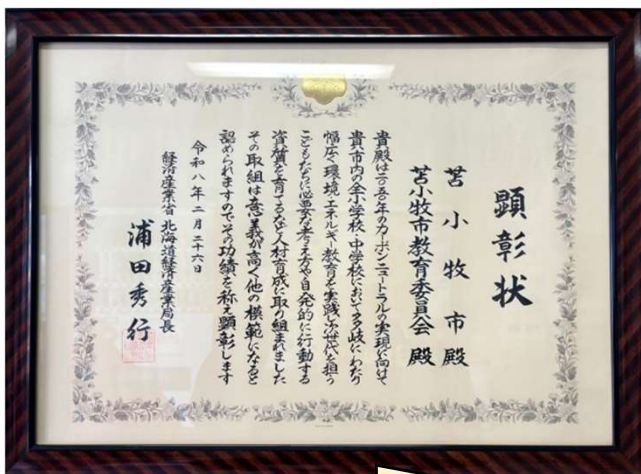 顕彰状
苫小牧市殿
苫小牧市教育委員会殿
貴殿は二〇五〇年のカーボンニュートラルの実現に向けて
貴市内の全小学校、中学校において多岐にわたり
幅広く環境・エネルギー教育を実践し次世代を担う
こどもたちに必要な考え方や自発的に行動する
資質を育てるなど人材育成に取り組まれました
その取組は意義が高く他の模範になると
認められますのでその功績を称え顕彰します
令和八年二月二十六日
経済産業省北海道経済産業局長
浦田秀行